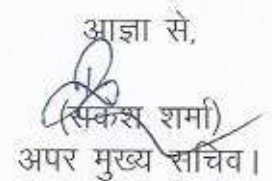 आज्ञा से,
शर्मा)
अपर मुख्य सचिव।